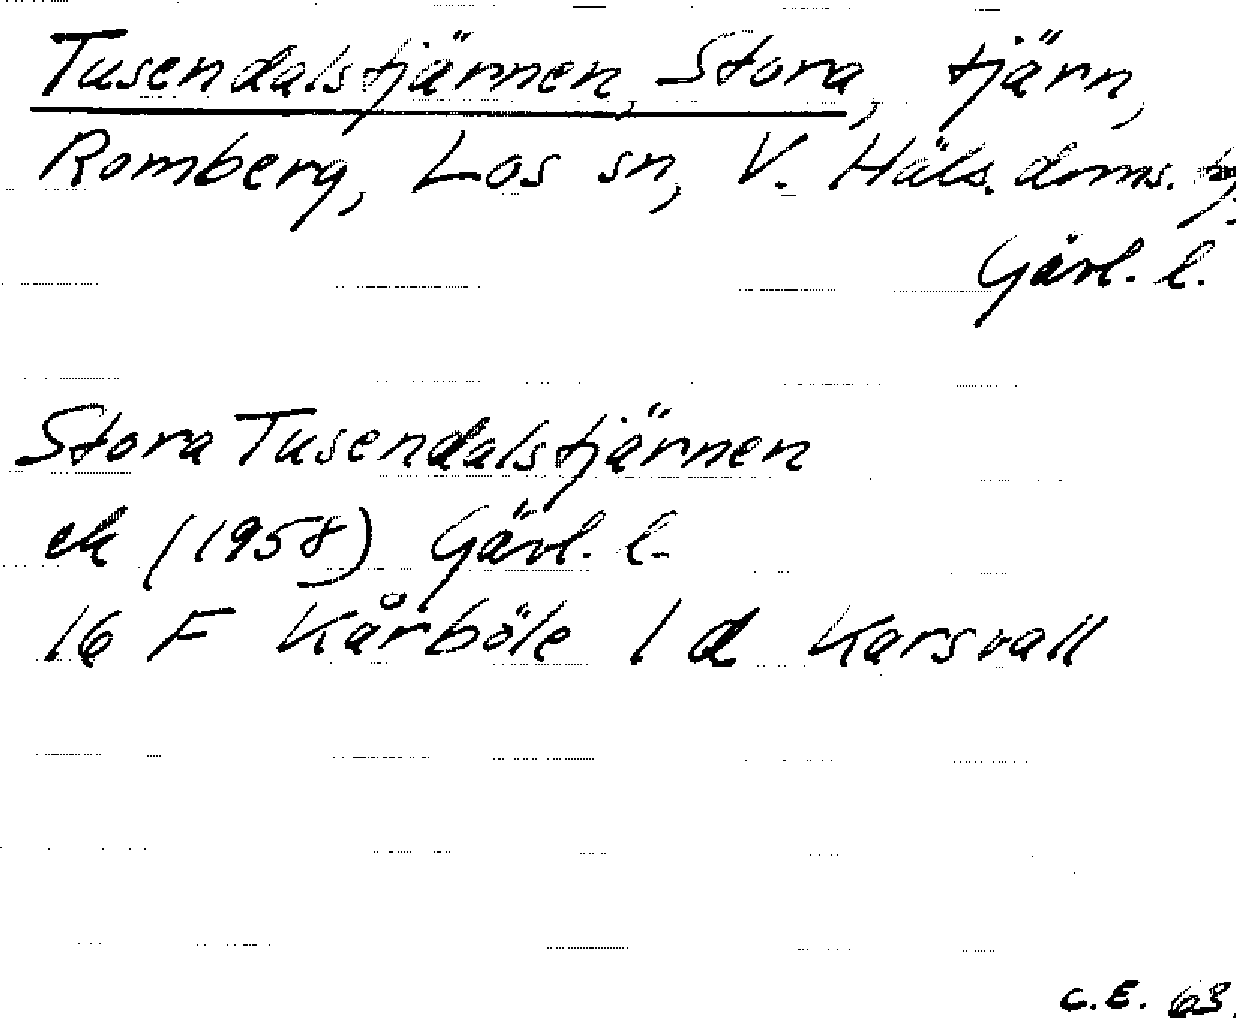 Tusendalstjärnen, Stora, tjärn,
Romberg, Los sn, V. Häls. doms.
Gävl. l.
Stora Tusendalstjärnen
ek (1958) Gävl. l.
16 F Kårböle 1 d Karsvall
C.E. 63.